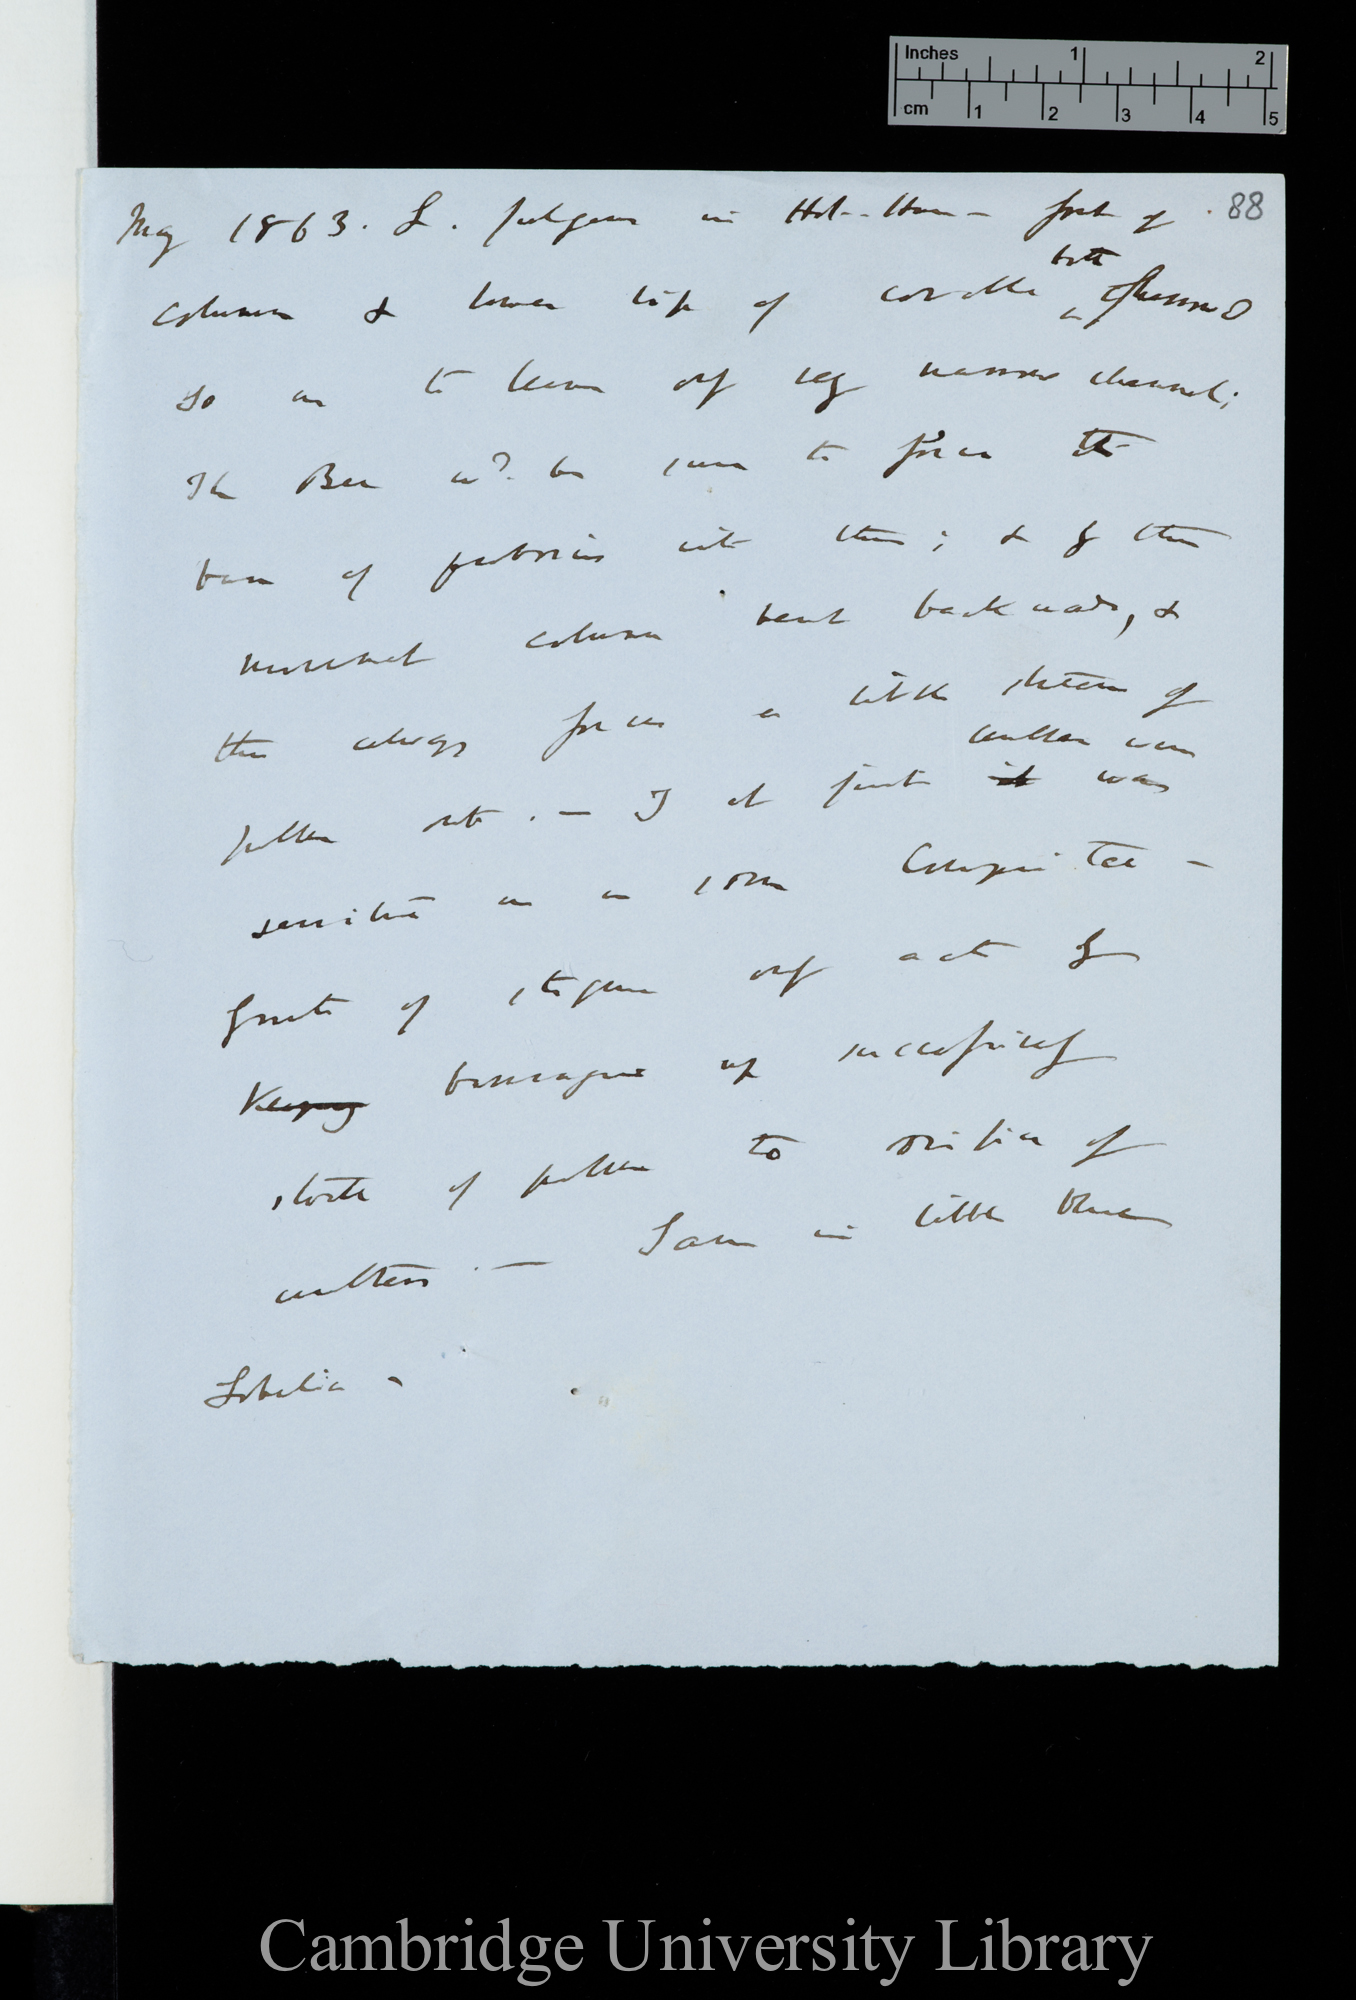 Inches 1 2
cm 1 2 3 4 5
88
May 1863. L. fulgens in Hot-House – foot of
column & lower lip of corolla both
so as to leave only very narrow channel;
The Bee wd. be sure to force the
base of proboscis into this; & by this
movement column bent backwards, &
this always forces a little shower of
pollen out. — I at first it was
anthers were
sensitive as in some Compositae –
of stigma only acts by
Keeping up successively
store of pollen to orifice of
anthers. — Same in little blue
Lobelia –
Cambridge University Library